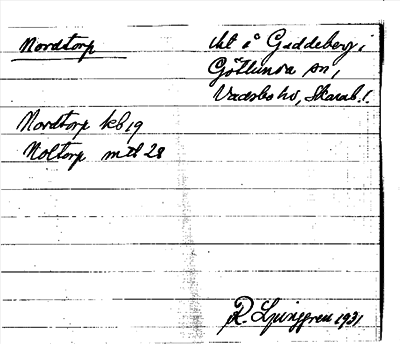 Nordtorp
Ut å Geddeberg i
Götlunda sn,
Vadsbo hd, Skarab.l.
Nordtorp kb 19
Noltorp mtl 28
R. Ljunggren 1931